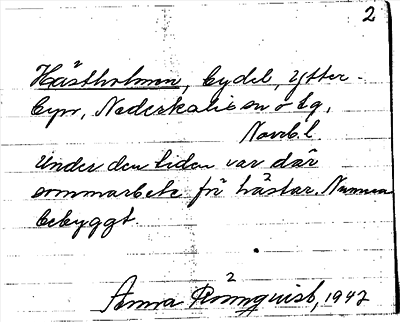 2
Hästholmen, bydel, Ytter-
byn, Nederkalix sn o lg,
Norrb. l.
Under den tiden var där
sommarbete för hästar. Numera
bebyggt.
Anna Rönnqvist, 1942